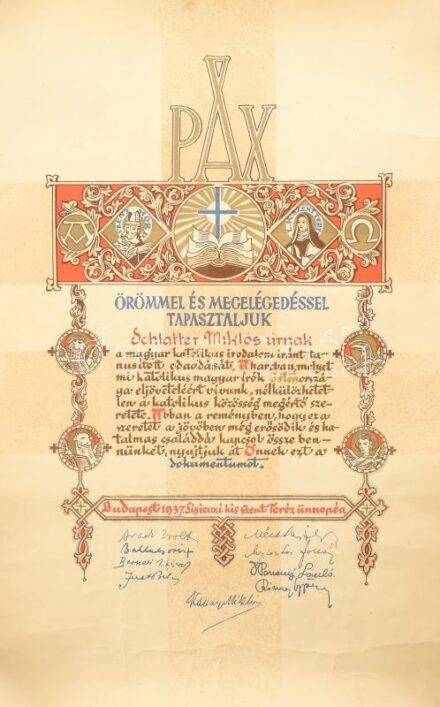 PAX
ÖRÖMMEL ÉS MEGELÉGEDÉSSEL
TAPASZTALJUK
Schlatter Miklós úrnak
a magyar katolikus irodalom iránt ta-
nusitott odaadását. A harcban, melyet
mi katolikus magyar írók Isten orszá-
ga eljöveteléért vivunk, nélkülözhetet-
len a katolikus közösség megértő sze-
retete. Abban a reményben, hogy ez a
szeretet a jövőben még erősödik és ha-
talmas családdá kapcsol össze ben-
nünket, nyujtjuk át Önnek ezt a
dokumentumot.
Budapest 1937. Lisieuxi kis Szent Teréz ünnepén